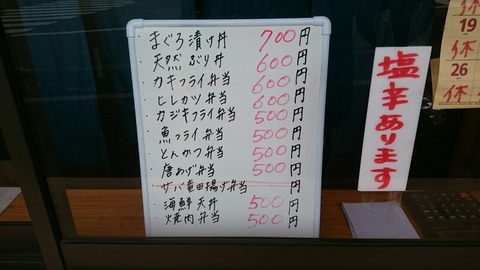 ・まぐろ漬け丼 700円
・天然ぶり丼 600円
・カキフライ弁当 600円
・ヒレカツ弁当 600円
・カジキフライ弁当 500円
・魚フライ弁当 500円
・とんかつ弁当 500円
・唐あげ弁当 500円
・サバ竜田揚げ弁当 円
・海鮮天丼 500円
・焼肉弁当 500円
塩辛あります
休
19
休
26
休